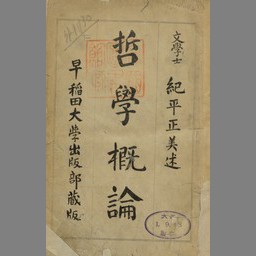 文學士
紀平正美述
哲學概論
早稲田大学出版部蔵版